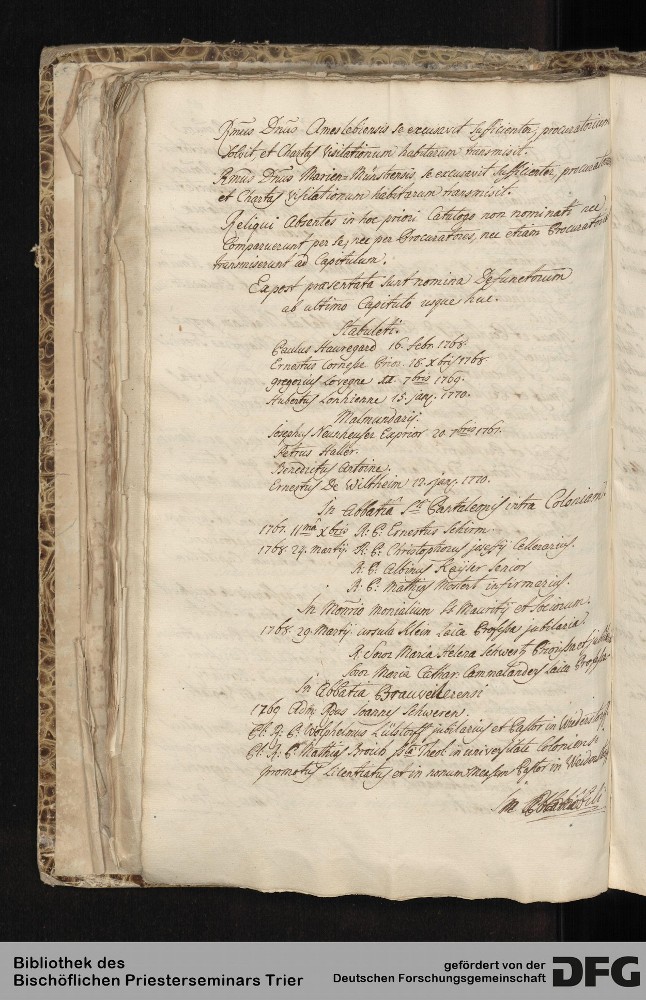 Rmus Dnus Ameslebiensis se excusavit sufficienter, procuratorium
solvit et Chartas visitationum habitarum transmisit.
Rmus Dnus Marien-Münstrensis, se excusavit sufficienter, procurat
et Chartas visitationum habitarum transmisit.
Reliqui absentes in hoc priori Catalogo non nominati nec
Comparuerunt per se, nec per Procuratores, nec etiam Procurator
transmiserunt ad Capitulum.
Expost praesentata sunt nomina Defunctorum
ab ultimo Capitulo usque huc.
Stabuleti.
Paulus Hauregard 16. febr. 1768.
Ernestus Cornesse Prior. 18. Xbris 1768.
gregorius Lovegne 7bris 1769.
Hubertus Lonhienne 15. janj. 1770.
Malmundarij.
josephus Neunheuser Exprior 20. 7bris 1767.
Petrus Haller.
Benedictus Antoine.
Ernestus De Wiltheim 12. janj. 1770.
In Abbatia Sti Pantaleonis intra Coloniam.
1767. 11ma Xbris R. P. Ernestus Schirm.
1768. 29. martij. R. P. Christophorus Cellerarius.
R. P. Albinus Kaÿser Senior
R. P. Mathias Mostert infirmarius.
In Monrio monialium St Mauritij et sociorum.
1768. 29. Martij. ursula Klein Laica Professa jubilaria.
R. Soror Maria Helena Schwest Priorissa et
Soror Maria Cathar. Cammalanders Laica Professa
In Abbatia Brauwilerensi
1769 Adm Rdus Joannes Schweren.
Pl. R. P. Wolphelmus Lülstorff jubilarius et Pastor in
Pl. R. P. Mathias Broich Theol. in universitate Coloniens
promotus Licentiatus et in nonum mensem Pastor in
In